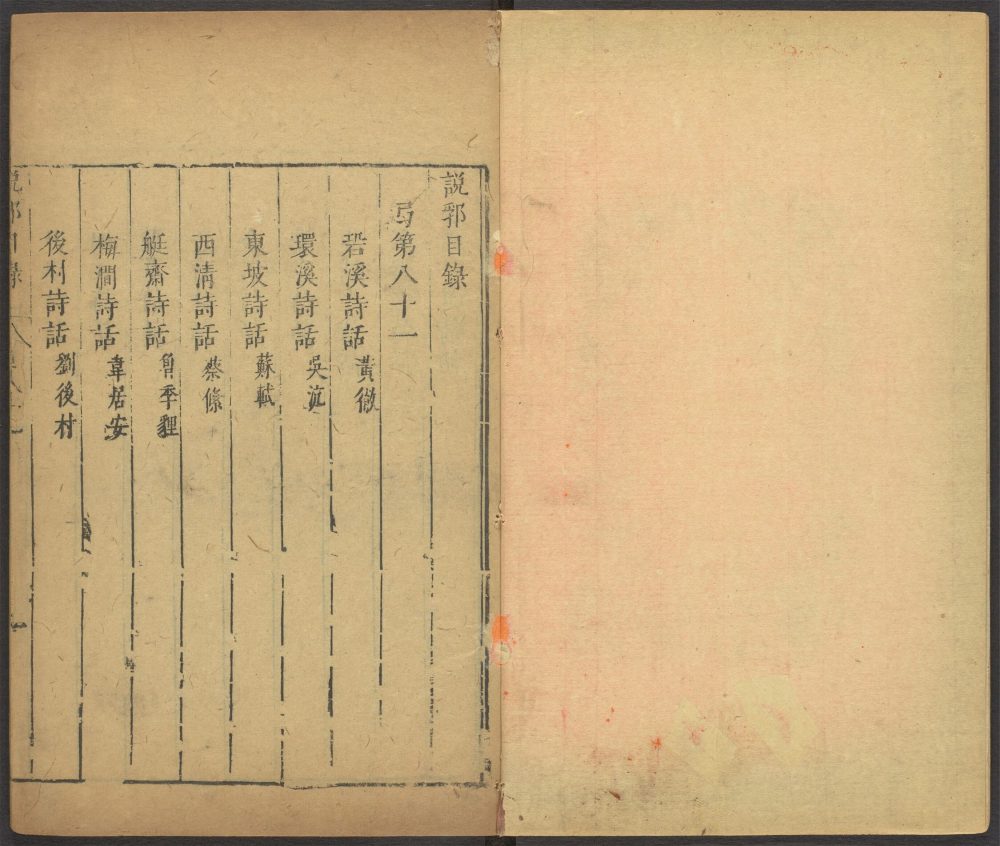 説郛目錄
弓第八十一
䂬溪詩話 黃徹
環溪詩話 吳沆
東坡詩話 蘇軾
西清詩話 蔡絛
艇齋詩話 曾季貍
梅澗詩話 韋居安
後村詩話 劉後村
説郛目錄